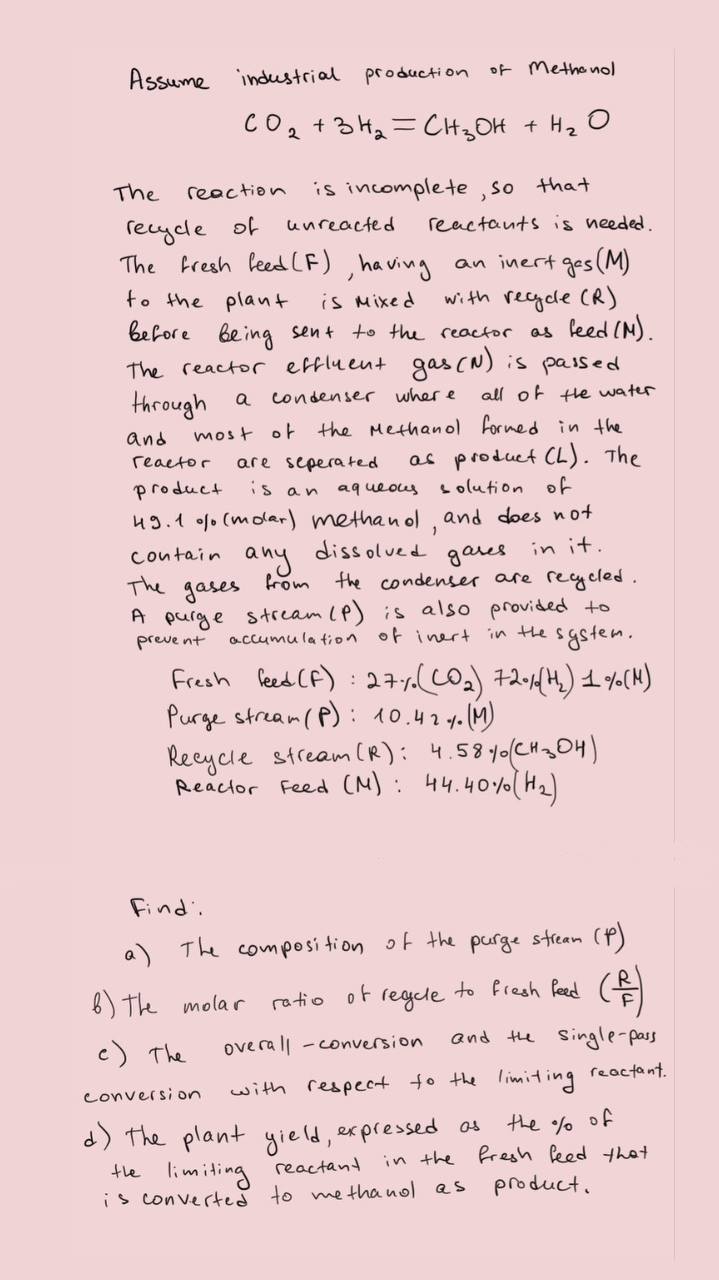 Assume industrial production of Methanol
CO2 + 3H2 = CH3OH + H2O
The reaction is incomplete, so that
recycle of unreacted reactants is needed.
The fresh feed (F), having an inert gas (M)
to the plant is mixed with recycle (R)
before being sent to the reactor as feed (M).
The reactor effluent gas (N) is passed
through a condenser where all of the water
and most of the Methanol formed in the
reactor are seperated as product (L). The
product is an aqueous solution of
49.1 % (molar) methanol, and does not
contain any dissolved gases in it.
The gases from the condenser are recycled.
A purge stream (P) is also provided to
prevent accumulation of inert in the system.
Fresh feed (F) : 27% (CO2) 72% (H2) 1% (M)
Purge stream (P) : 10.42 % (M)
Recycle stream (R) : 4.58 % (CH3OH)
Reactor Feed (M) : 44.40% (H2)
Find:
a) The composition of the purge stream (P)
b) The molar ratio of recycle to fresh feed (R/F)
c) The overall-conversion and the single-pass
conversion with respect to the limiting reactant.
d) The plant yield, expressed as the % of
the limiting reactant in the fresh feed that
is converted to methanol as product.